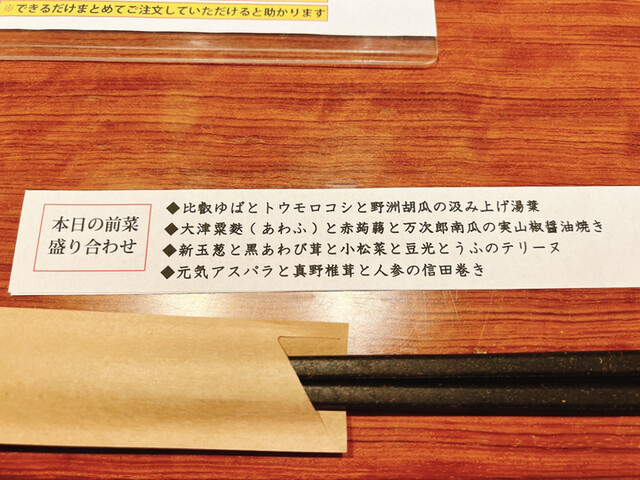 ※できるだけまとめてご注文していただけると助かります
本日の前菜
盛り合わせ
◆比叡ゆばとトウモロコシと野洲胡瓜の汲み上げ湯葉
◆大津粟麩(あわふ)と赤蒟蒻と万次郎南瓜の実山椒醤油焼き
◆新玉葱と黒あわび茸と小松菜と豆光とうふのテリーヌ
◆元気アスパラと真野椎茸と人参の信田巻き